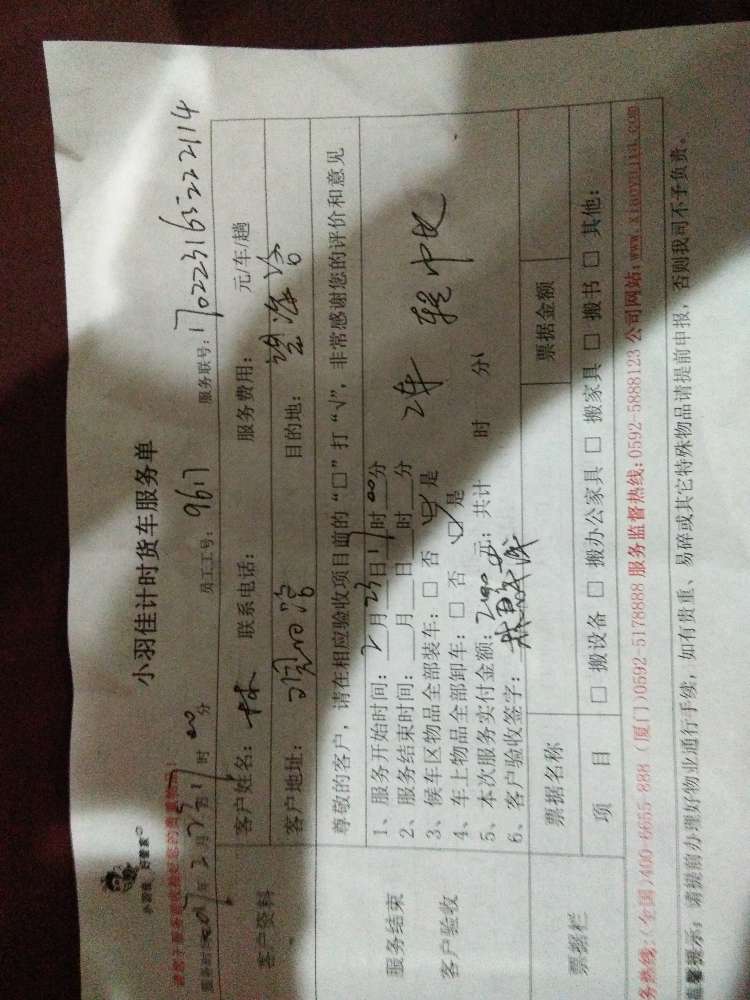 小羽佳 好管家
小羽佳计时货车服务单
2017年2月23日17时00分 员工工号：9617 服务联号：170223163222114
客户资料
客户姓名：林 联系电话： 服务费用： 元/车/趟
客户地址： 目的地：
尊敬的客户，请在相应验收项目前的“□”打“√”，非常感谢您的评价和意见
服务结束
客户验收
1、服务开始时间：2月23日17时00分
2、服务结束时间：___月___日___时___分
3、候车区物品全部装车：□ 否 ☑ 是
4、车上物品全部卸车：□ 否 ☑ 是
5、本次服务实付金额： 元；共计 时 分
6、客户验收签字：
票据栏
票据名称 票据金额
项 目 □ 搬设备 □ 搬办公家具 □ 搬家具 □ 搬书 □ 其他：
务热线：(全国)400-6655-888 (厦门)0592-5178888 服务监督热线：0592-5888123 公司网站：www.xiaoyujia.com
温馨提示：请提前办理好物业通行手续，如有贵重、易碎或其它特殊物品请提前申报，否则我司不予负责。